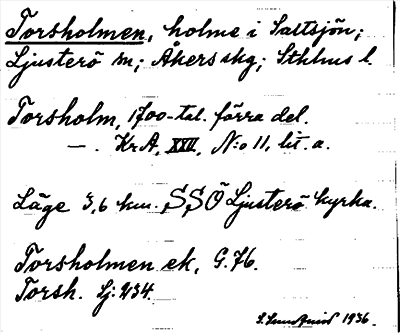 Torsholmen, holme i Saltsjön;
Ljusterö sn; Åkers skg; Sthlms l.
Torsholm, 1700-tal. förra del.
— . Kr A, XXII, N:o 11, lit. a.
Läge 3,6 km. SSÖ Ljusterö kyrka.
Torsholmen ek, G. 76.
Torsh. Lj: 234.
S. Lundqvist 1936.